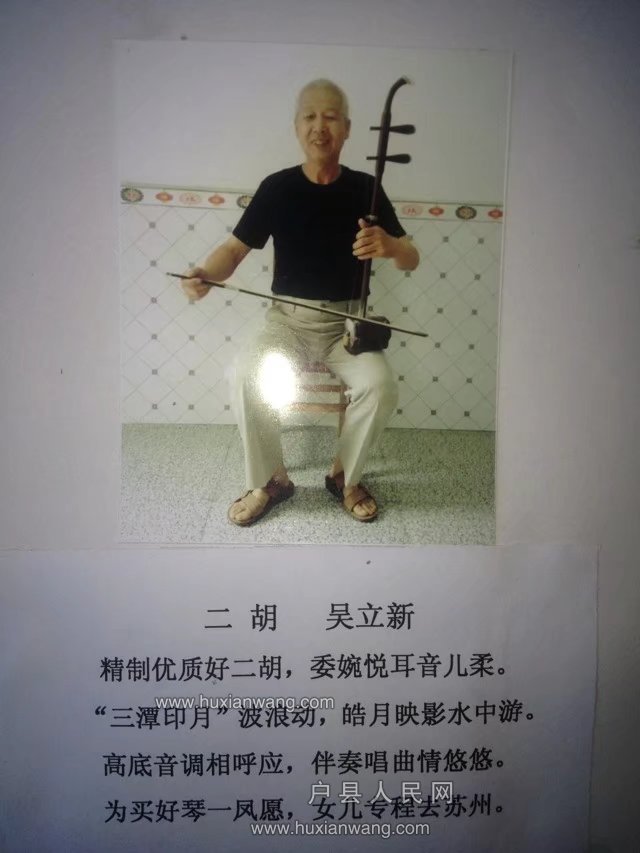 二 胡 吴立新
精制优质好二胡，委婉悦耳音儿柔。
www.huxianwang.com
“三潭印月”波浪动，皓月映影水中游。
高底音调相呼应，伴奏唱曲情悠悠。
户县人民网
为买好琴一凤愿，女儿专程去苏州。
www.huxianwang.com